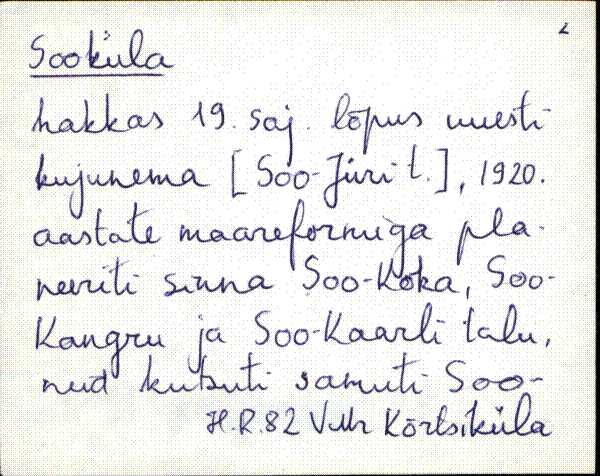 2
Sooküla
hakkas 19. saj. lõpus uuesti
kujunema [Soo-Jüri t.], 1920.
aastate maareformiga pla-
neeriti sinna Soo-Koka, Soo-
Kangru ja Soo-Kaarli talu,
neid kutsuti samuti Soo-
H.R.82 VMr Kõrtsiküla